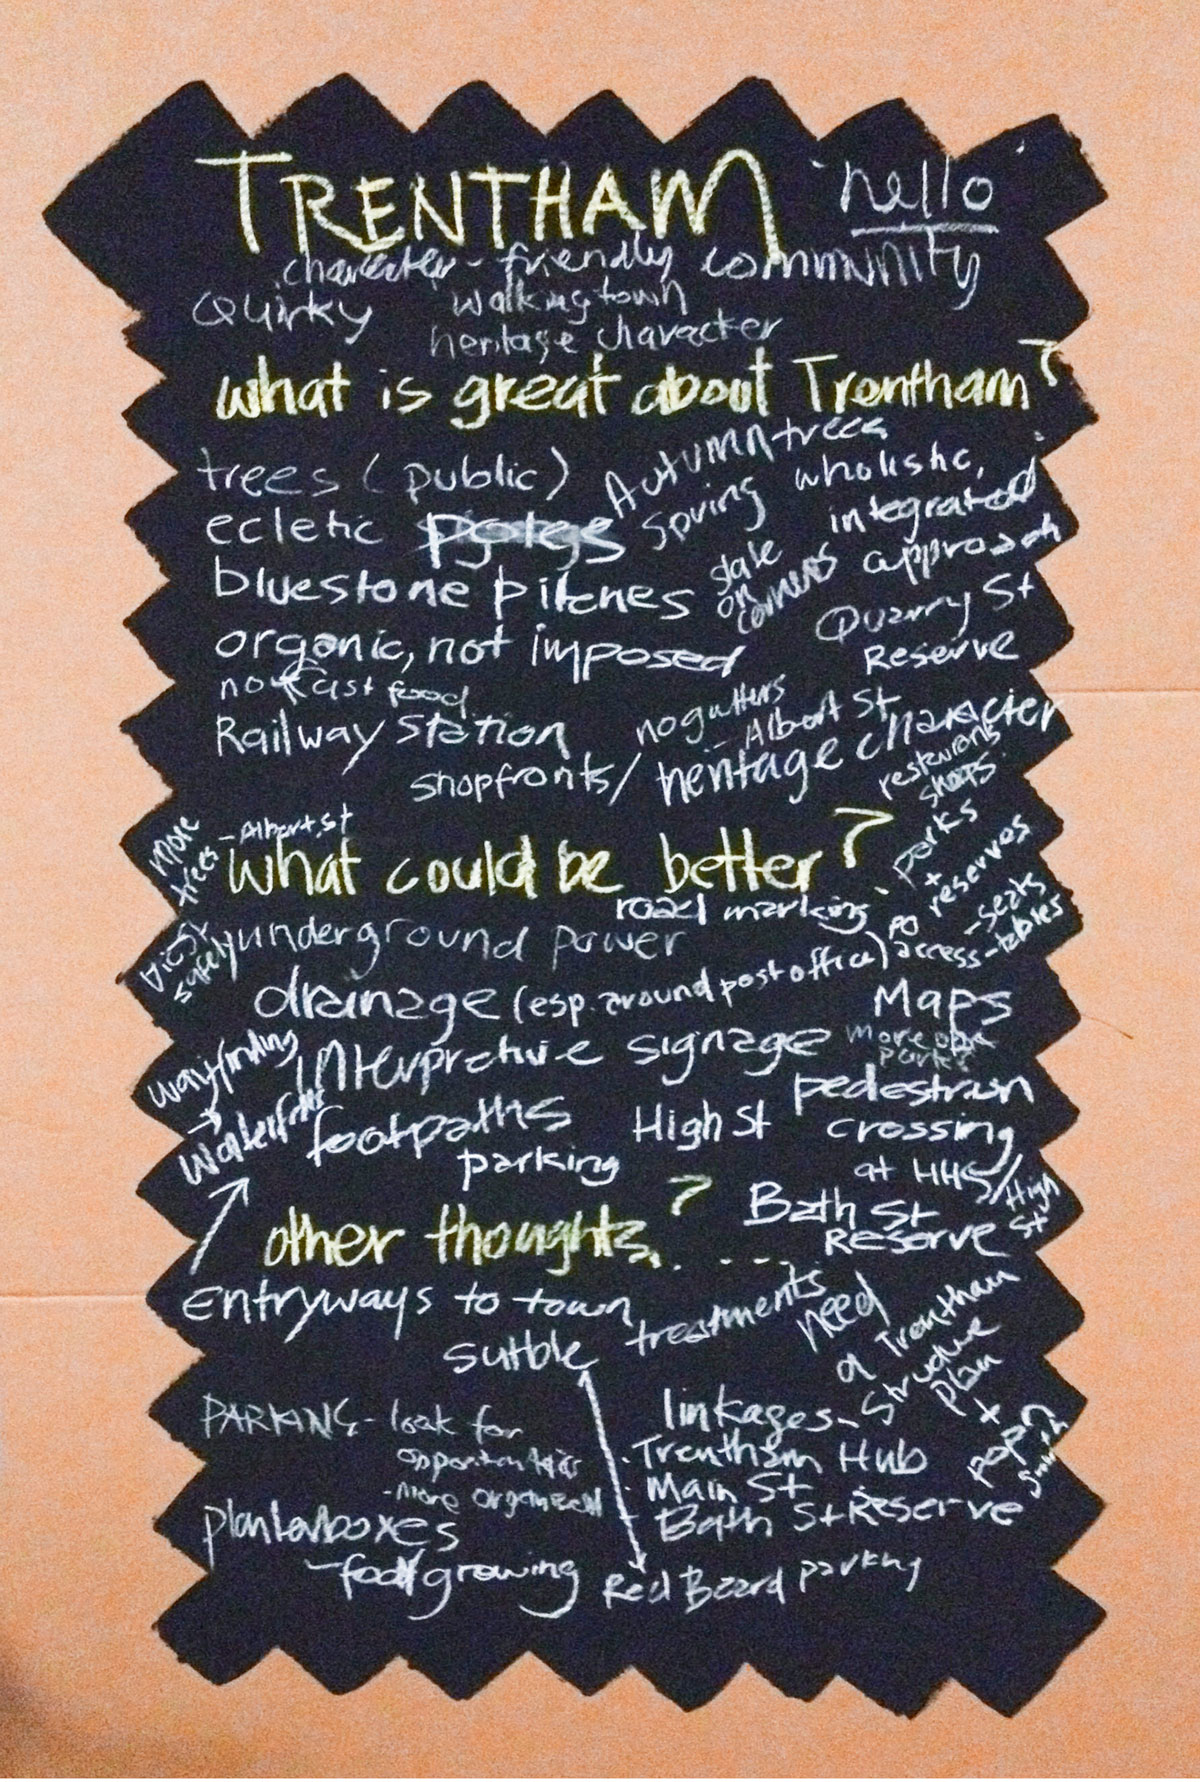 TRENTHAM
hello
character - friendly community
Quirky
walking town
heritage character
what is great about Trentham?
trees (public)
Autumn trees
Spring
wholistic,
integrated
approach
ecletic
slate
on
corners
bluestone pitches
Quarry St
Reserve
organic, not imposed
no fast food
Railway Station
no gutters
- Albert St
shopfronts/ heritage character
restaurants
shops
more
trees
- Albert st
what could be better?
parks
+
reserves
- seats
- tables
road marking
safety
underground power
drainage (esp. around post office)
PO
access
Maps
wayfinding
Interpretive signage
more
footpaths
High St
pedestrian
crossing
at HHS/
High
St
parking
other thoughts? . . . .
Bath St
Reserve
Entryways to town
treatments
sutble
need
a Trentham
Structure
plan
+
PARKING - look for
opportunities
- more organized
linkages -
. Trentham Hub
. Main St
- Bath St Reserve
planterboxes
- food growing
Red Beard parking